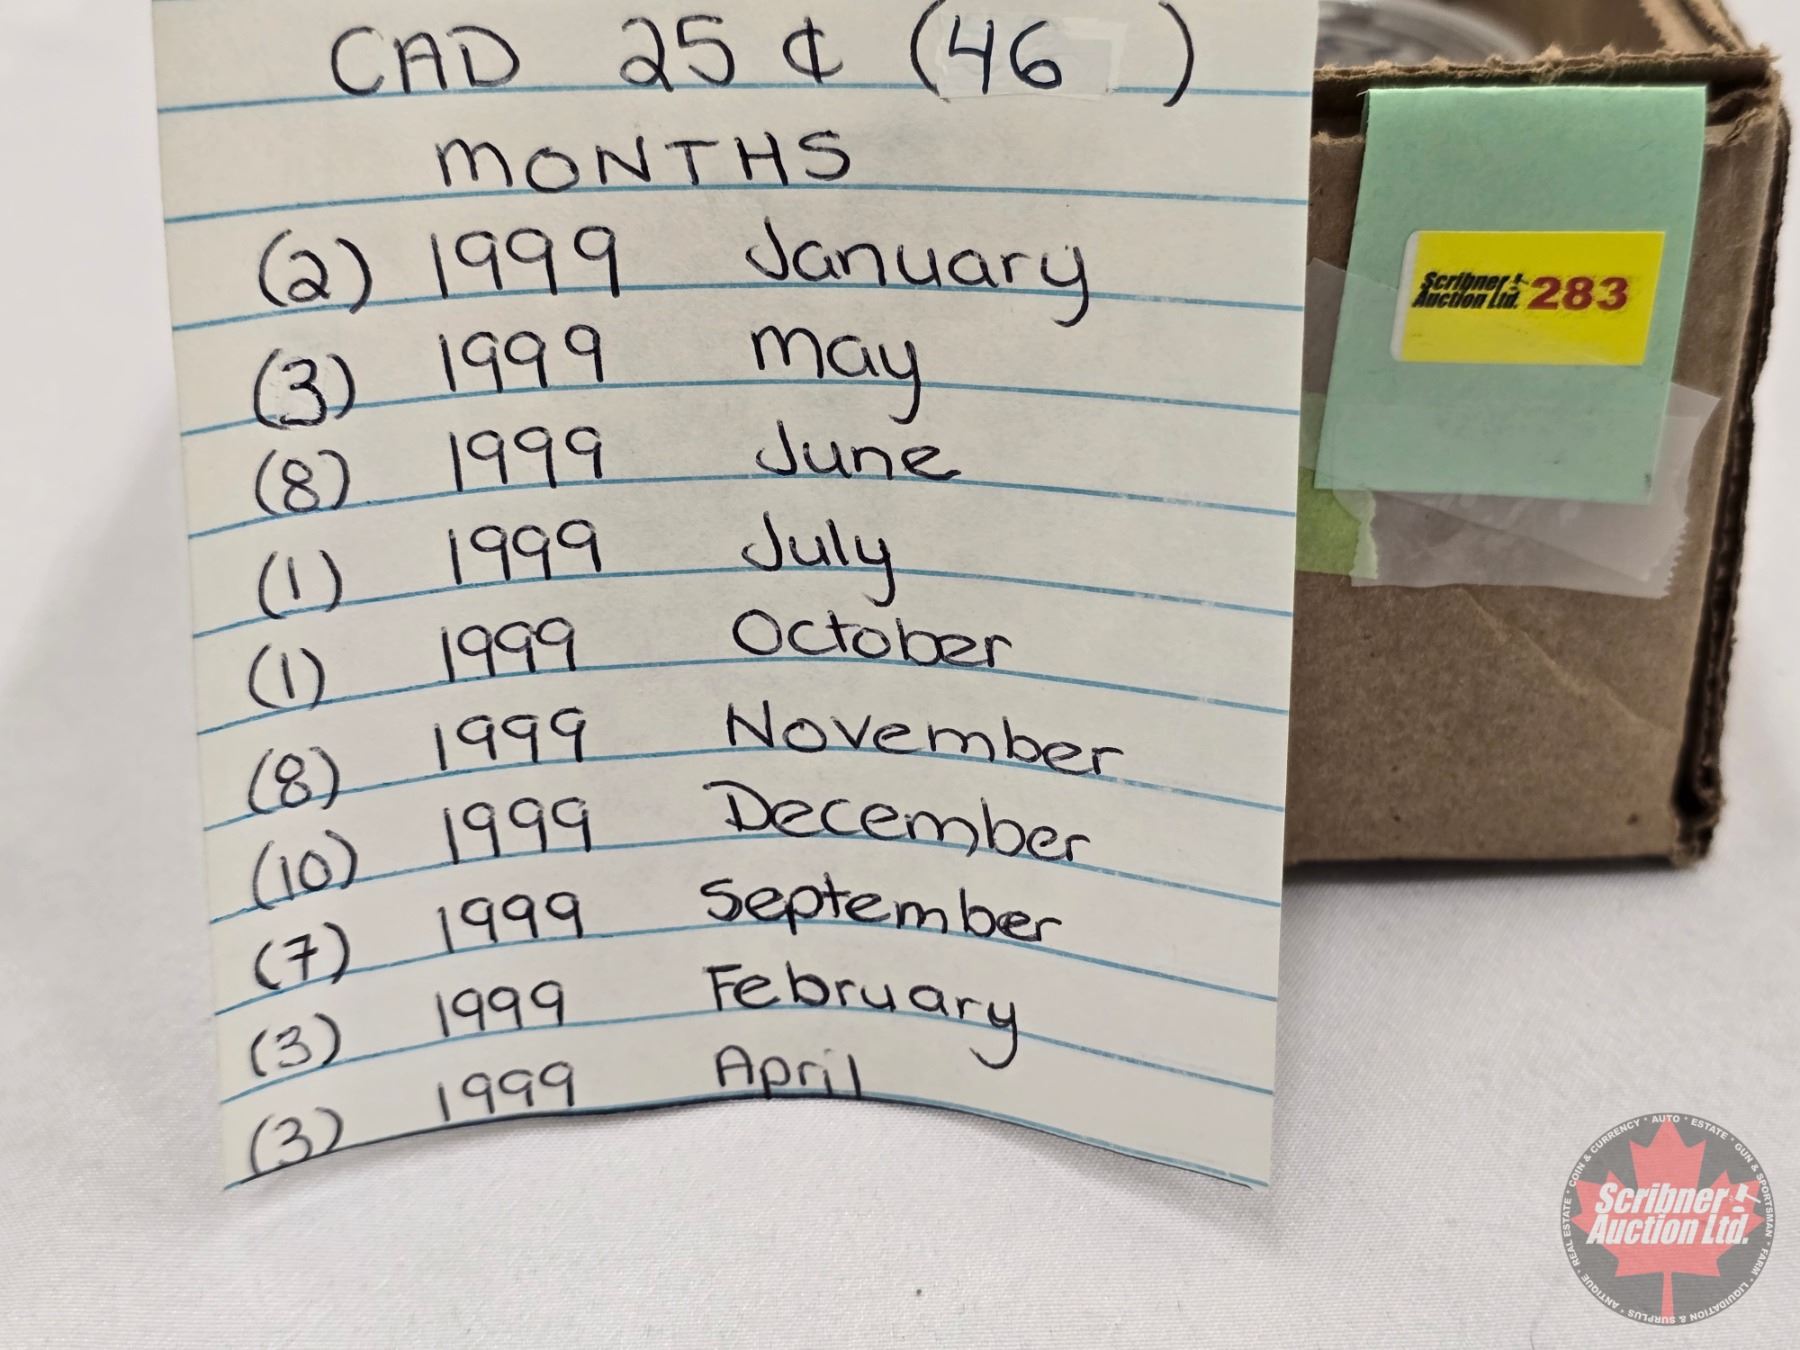 CAD 25 ¢ (46 )
MONTHS
(2) 1999 January
(3) 1999 May
(8) 1999 June
(1) 1999 July
(1) 1999 October
(8) 1999 November
(10) 1999 December
(7) 1999 September
(3) 1999 February
(3) 1999 April
Scribner
Auction Ltd. 283
ANTIQUE • REAL ESTATE • COIN & CURRENCY • AUTO • ESTATE • GUN & SPORTSMAN • FARM • LIQUIDATION & SURPLUS •
Scribner
Auction Ltd.